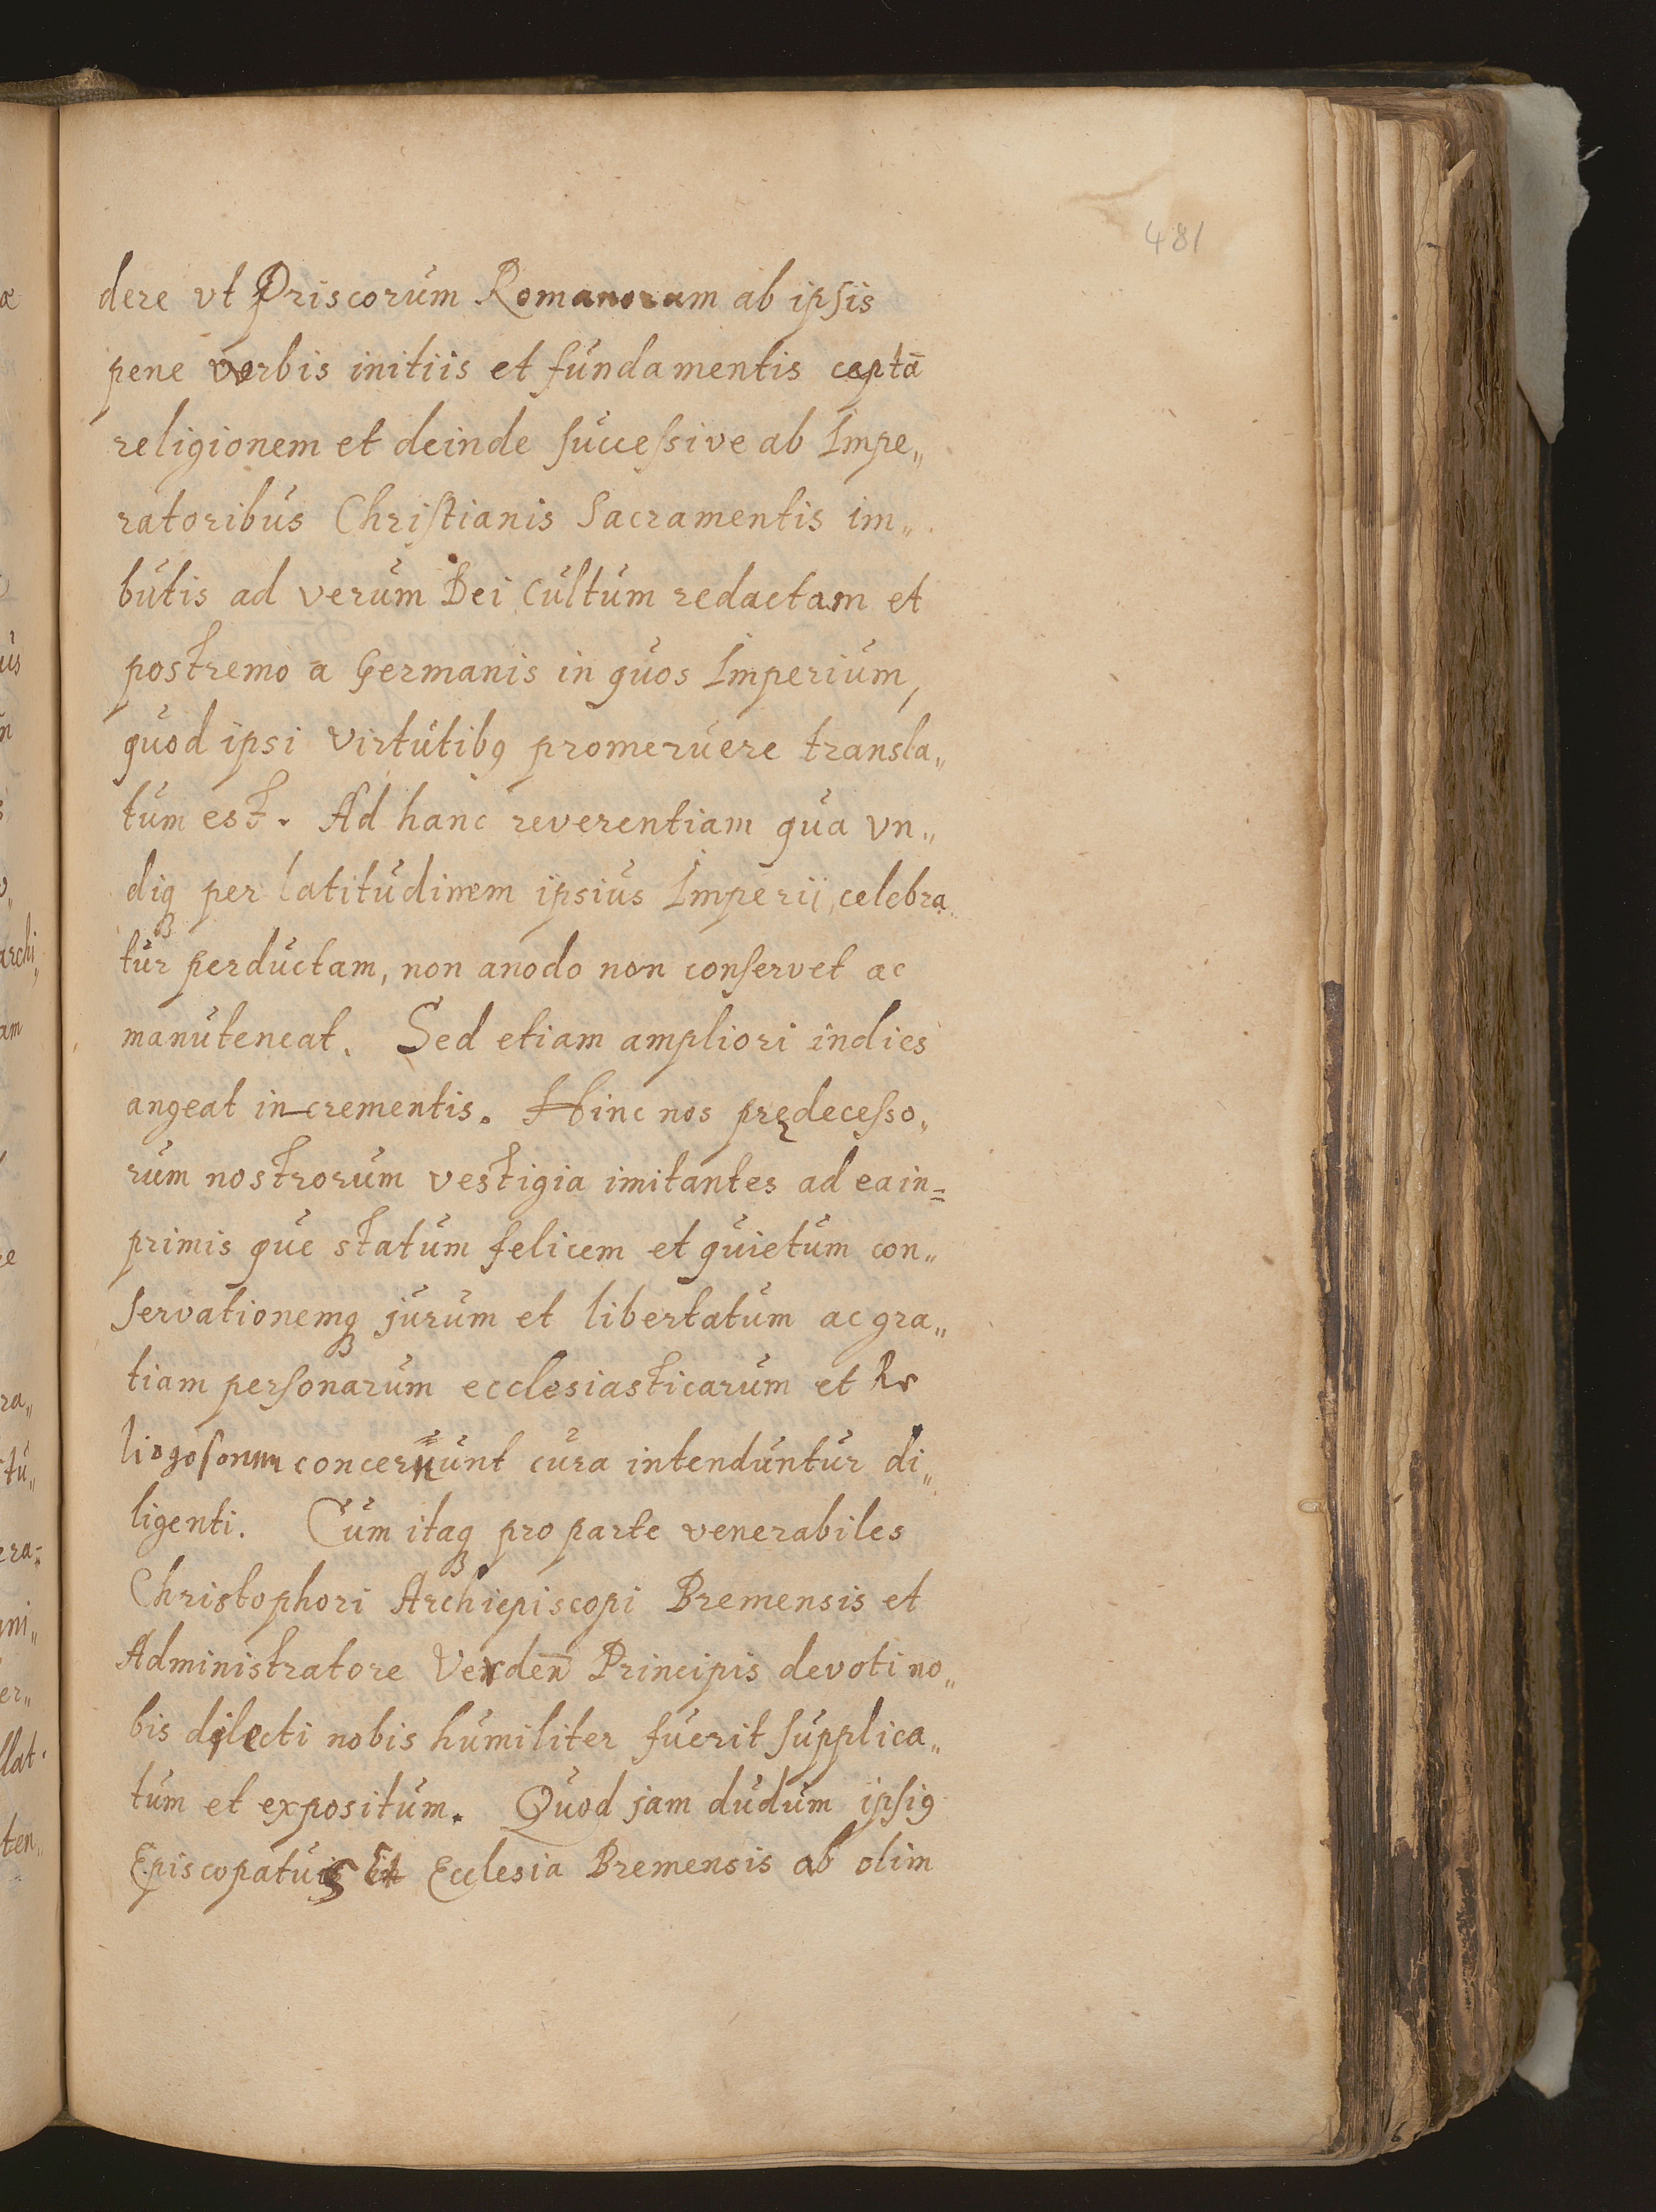 481
dere vt Priscorum Romanorum ab ipsis
pene verbis initiis et fundamentis ceptā
religionem et deinde successive ab Impe„
ratoribus Christianis Sacramentis im„
butis ad verum Dei Cultum redactam et
postremo a Germanis in quos Imperium,
quod ipsi virtutibꝯ promeruere transla„
tum est. Ad hanc reverentiam qua vn„
diqꝫ per latitudinem ipsius Imperii, celebra„
tur perductam, non anodo non conservet ac
manuteneat. Sed etiam ampliori indies
angeat incrementis. Hinc nos prędecesso„
rum nostrorum vestigia imitantes ad ea in=
primis que statum felicem et quietum con„
servationemqꝫ jurum et libertatum ac gra„
tiam personarum ecclesiasticarum et Re
concernunt cura intenduntur di„
ligenti. Cum itaqꝫ pro parte venerabiles
Christophori Archiepiscopi Bremensis et
Administratore Verdeñ Principis devoti no„
bis dilecti nobis humiliter fuerit supplica„
tum et expositum. Quod jam dudum ipsiꝯ
Episcopatus Et Ecclesia Bremensis ab olim